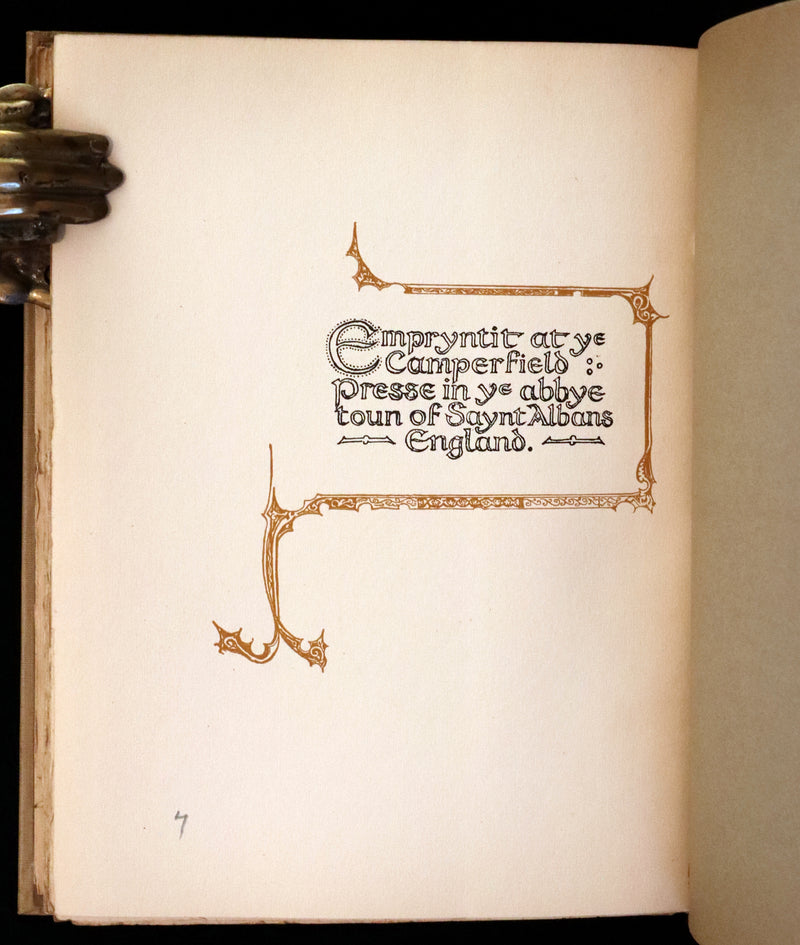 Empryntit at ye
Camperfield
Presse in ye abbye
toun of Saynt Albans
England.
7